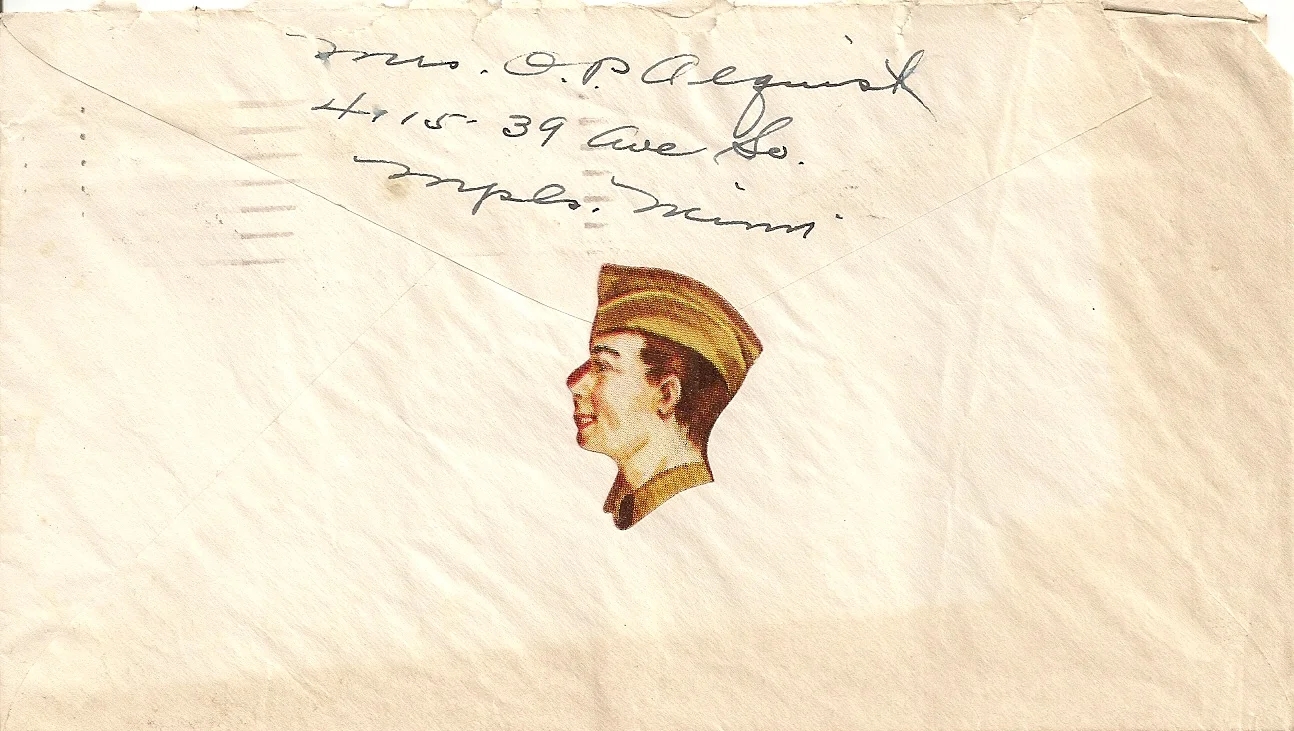 Mrs. O. P. Alquist
4115- 39 Ave So.
Mpls. Minn